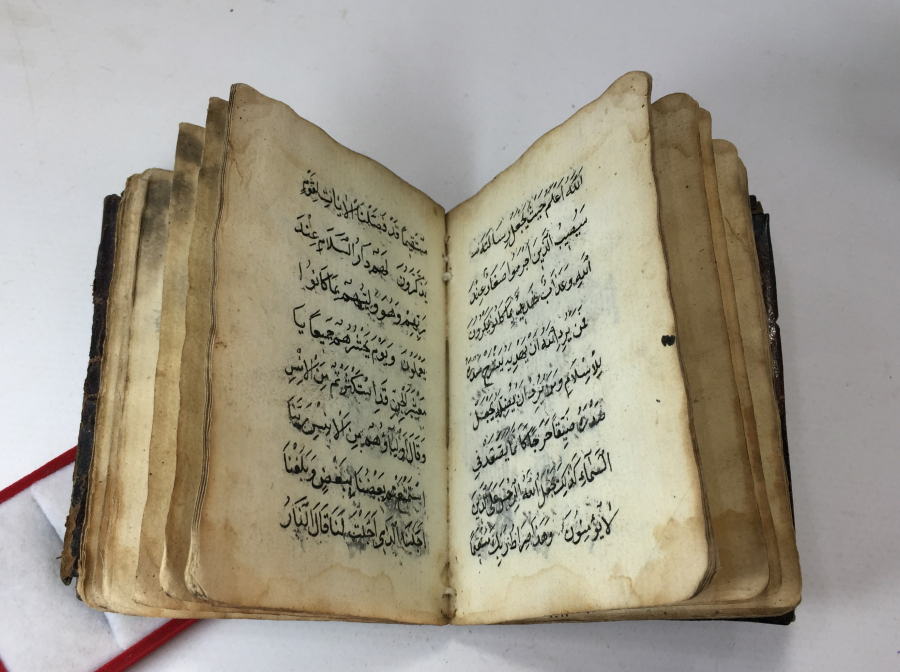 الله أعلم حيث يجعل رسالته
سيصيب الذين أجرموا صغار عند
الله وعذاب شديد بما كانوا يمكرون
فمن يرد الله أن يهديه يشرح صدره
للإسلام ومن يرد أن يضله يجعل
صدره ضيقا حرجا كانما يصعد في
السماء كذلك يجعل الله الرجس على الذين
لا يؤمنون وهذا صراط ربك مستقيما
مستقيما قد فصلنا الآيات لقوم
يذكرون لهم دار السلام عند
ربهم وهو وليهم بما كانوا
يعملون ويوم يحشرهم جميعا يا
معشر الجن قد استكثرتم من الإنس
وقال أولياؤهم من الإنس ربنا
استمتع بعضنا ببعض وبلغنا
أجلنا الذي أجلت لنا قال النار